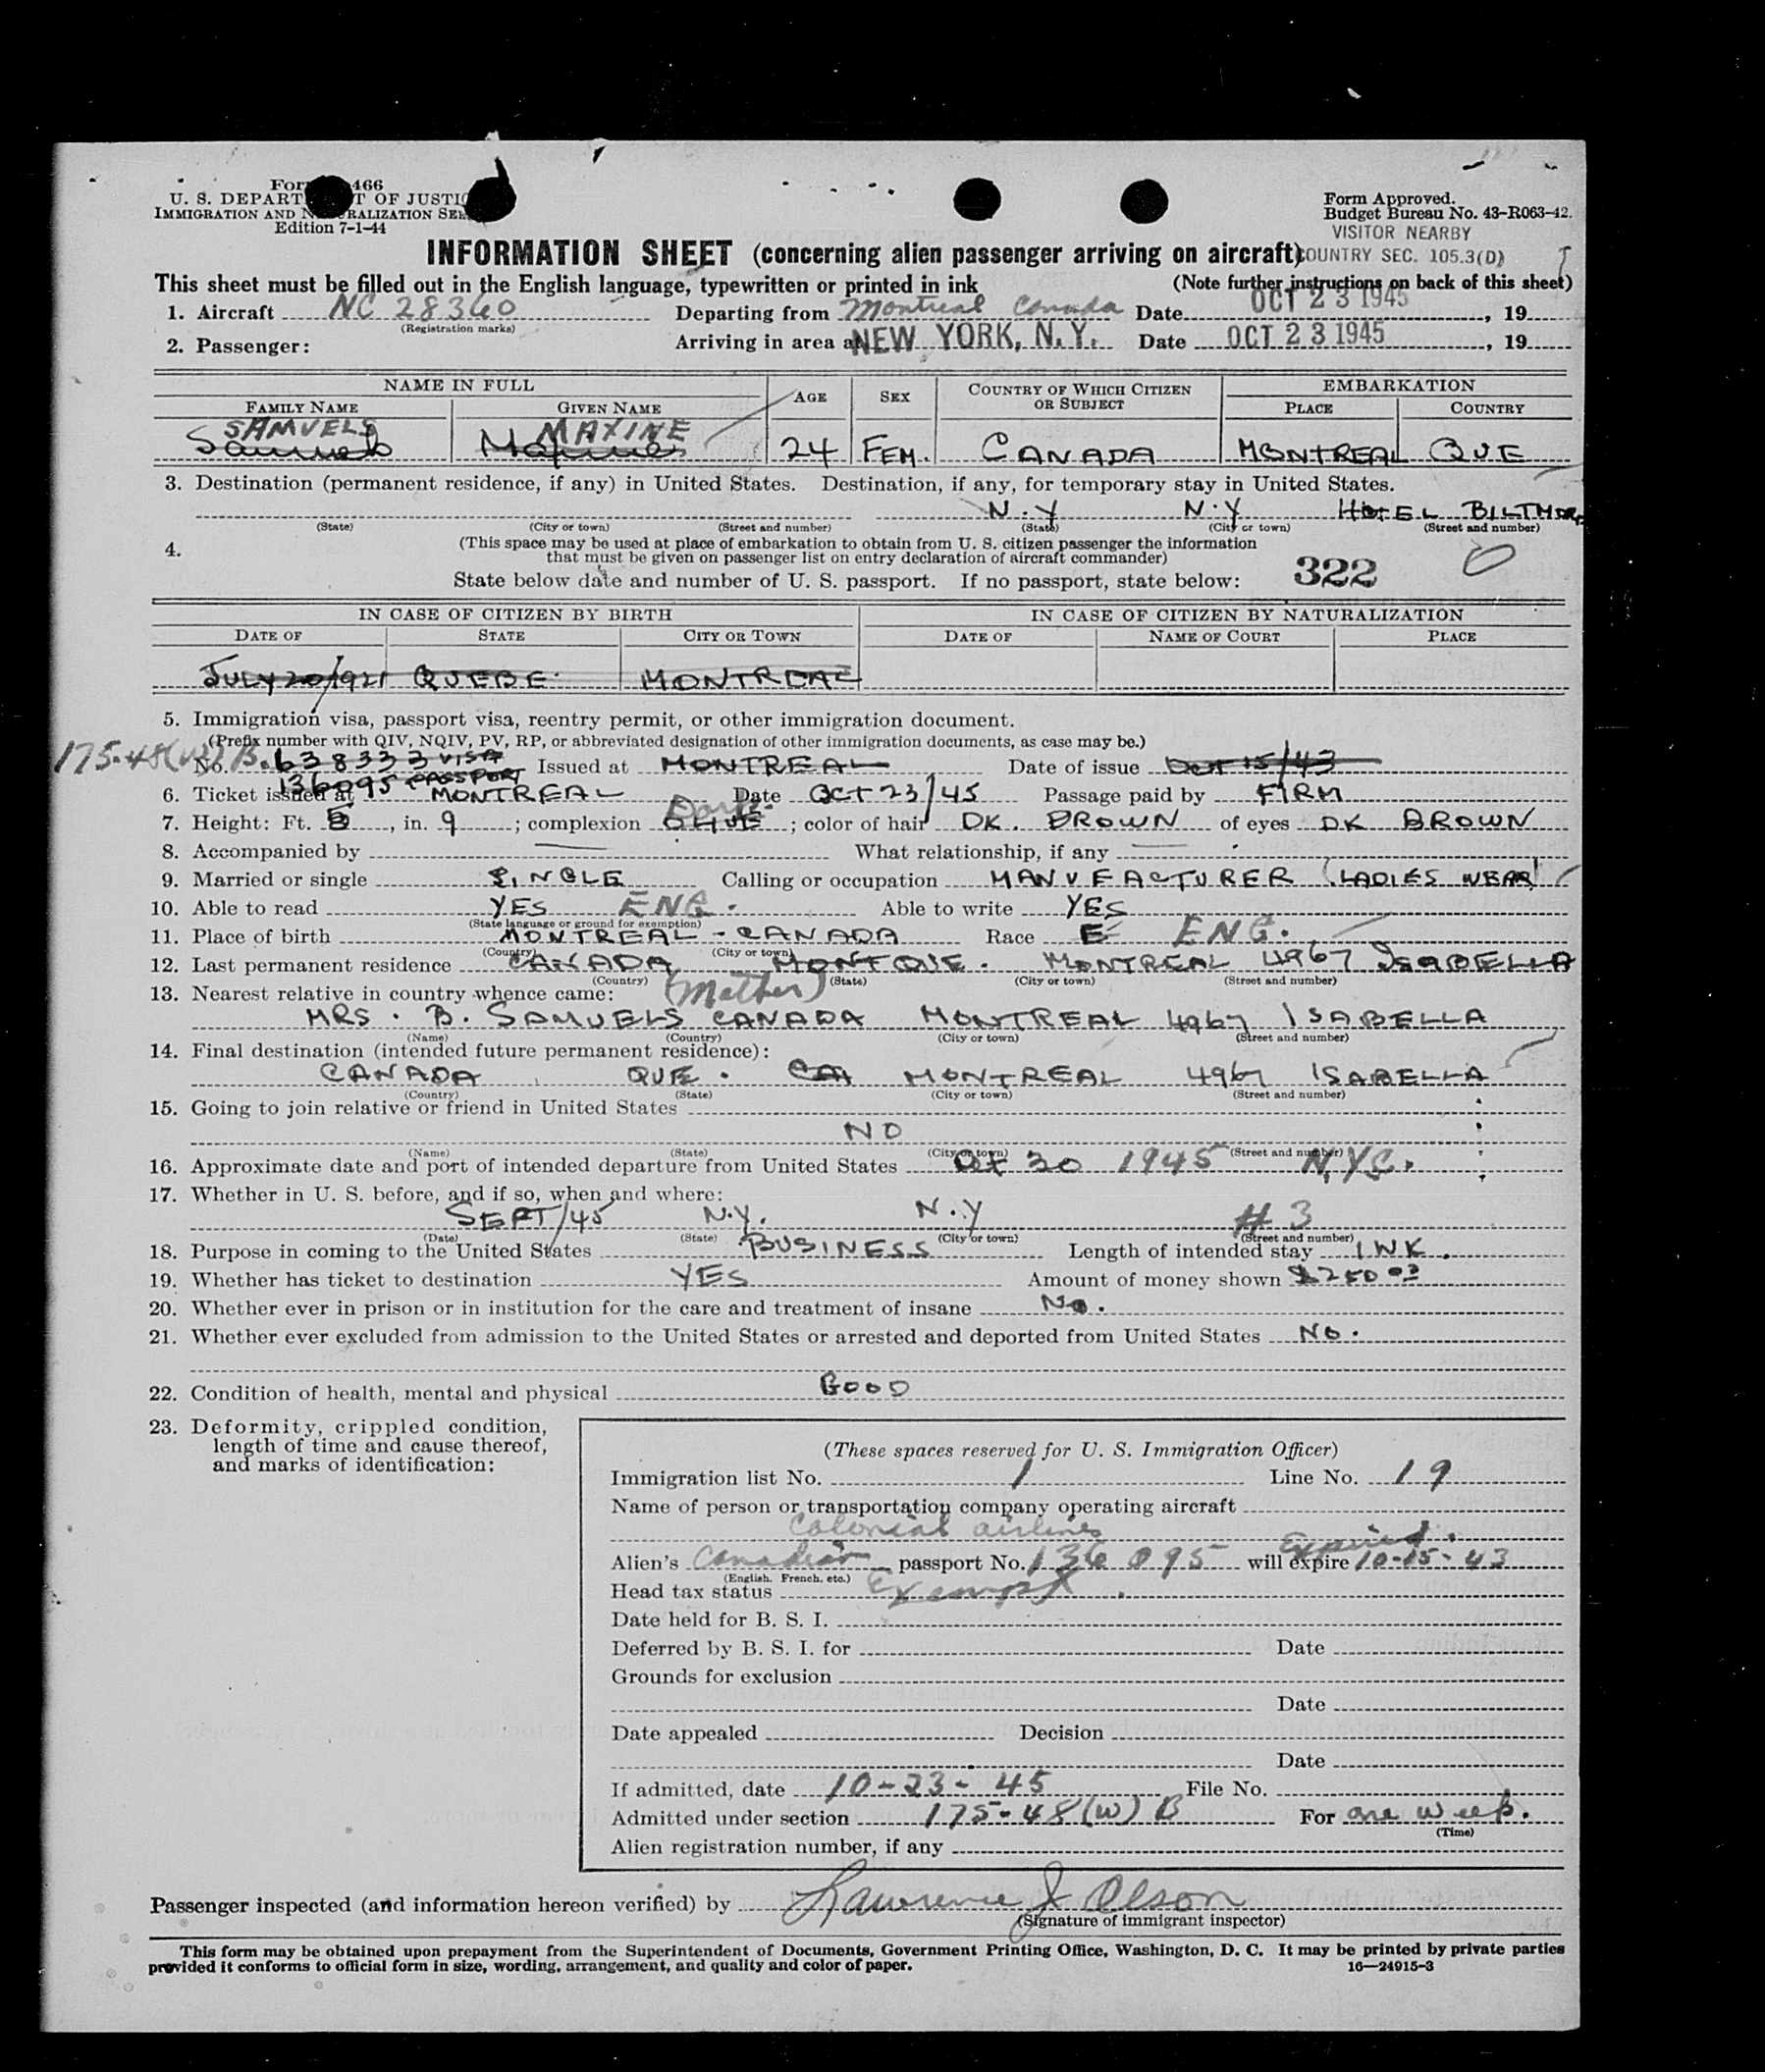 Form 466
U. S. DEPART T OF JUSTIC
IMMIGRATION AND N RALIZATION SER
Edition 7-1-44
Form Approved.
Budget Bureau No. 43-R063-42.
VISITOR NEARBY
COUNTRY SEC. 105.3(D)
INFORMATION SHEET (concerning alien passenger arriving on aircraft)
This sheet must be filled out in the English language, typewritten or printed in ink (Note further instructions on back of this sheet)
1. Aircraft NC 28360 Departing from Montreal Canada Date OCT 23 1945, 19
(Registration marks)
2. Passenger: Arriving in area at NEW YORK, N.Y. Date OCT 23 1945, 19
NAME IN FULL AGE SEX COUNTRY OF WHICH CITIZEN OR SUBJECT EMBARKATION
FAMILY NAME GIVEN NAME PLACE COUNTRY
SAMUELS MAXINE
Samuels 24 FEM. CANADA MONTREAL QUE
3. Destination (permanent residence, if any) in United States. Destination, if any, for temporary stay in United States.
N.Y N.Y HOTEL BILTMORE
(State) (City or town) (Street and number) (State) (City or town) (Street and number)
4. (This space may be used at place of embarkation to obtain from U. S. citizen passenger the information
that must be given on passenger list on entry declaration of aircraft commander)
State below date and number of U. S. passport. If no passport, state below: 322
IN CASE OF CITIZEN BY BIRTH IN CASE OF CITIZEN BY NATURALIZATION
DATE OF STATE CITY OR TOWN DATE OF NAME OF COURT PLACE
JULY 20/1921 QUEBE MONTREAL
5. Immigration visa, passport visa, reentry permit, or other immigration document.
(Prefix number with QIV, NQIV, PV, RP, or abbreviated designation of other immigration documents, as case may be.)
175-48(W) B. No. 638333 VISA Issued at MONTREAL Date of issue OCT 15/43
136095 PASSPORT
6. Ticket issued at MONTREAL Date OCT 23/45 Passage paid by FIRM
7. Height: Ft. 5, in. 9; complexion OLIVE Dark; color of hair DK. BROWN of eyes DK BROWN
8. Accompanied by What relationship, if any
9. Married or single SINGLE Calling or occupation MANUFACTURER (LADIES WEAR)
10. Able to read YES ENG. Able to write YES
(State language or ground for exemption)
11. Place of birth MONTREAL - CANADA Race E ENG.
(Country) (City or town)
12. Last permanent residence CANADA MONT QUE. MONTREAL 4967 ISABELLA
(Country) (State) (City or town) (Street and number)
13. Nearest relative in country whence came: (Mother)
MRS. B. SAMUELS CANADA MONTREAL 4967 ISABELLA
(Name) (Country) (City or town) (Street and number)
14. Final destination (intended future permanent residence):
CANADA QUE. CA MONTREAL 4967 ISABELLA
(Country) (State) (City or town) (Street and number)
15. Going to join relative or friend in United States
NO
(Name) (State) (City or town) (Street and number)
16. Approximate date and port of intended departure from United States Oct 30 1945 N.Y.C.
17. Whether in U. S. before, and if so, when and where:
SEPT/45 N.Y. N.Y # 3
(Date) (State) (City or town) (Street and number)
18. Purpose in coming to the United States BUSINESS Length of intended stay 1 WK.
19. Whether has ticket to destination YES Amount of money shown $250.00
20. Whether ever in prison or in institution for the care and treatment of insane No.
21. Whether ever excluded from admission to the United States or arrested and deported from United States No.
22. Condition of health, mental and physical GOOD
23. Deformity, crippled condition,
length of time and cause thereof,
and marks of identification:
(These spaces reserved for U. S. Immigration Officer)
Immigration list No. 1 Line No. 19
Name of person or transportation company operating aircraft
Colonial airlines
Expired.
Alien's Canadian passport No. 136095 will expire 10-15-43
(English, French, etc.)
Head tax status Exempt.
Date held for B. S. I.
Deferred by B. S. I. for Date
Grounds for exclusion
Date
Date appealed Decision
Date
If admitted, date 10-23-45 File No.
Admitted under section 175-48(W) B For one week.
(Time)
Alien registration number, if any
Passenger inspected (and information hereon verified) by Lawrence J Olson
(Signature of immigrant inspector)
This form may be obtained upon prepayment from the Superintendent of Documents, Government Printing Office, Washington, D. C. It may be printed by private parties
provided it conforms to official form in size, wording, arrangement, and quality and color of paper. 16—24915-3